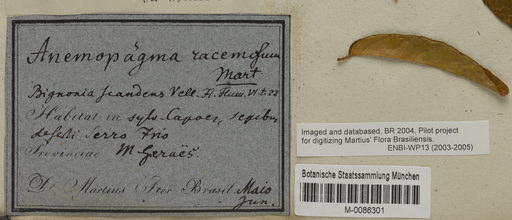 Anemopägma racemosum
Mart
Bignonia scandens Vell. Fl. Flum. VI t. 22
Habitat in sylv. Capoes, sepibus
deserti Serro Frio
Provinciae M. Geraës.
D. Martius Iter Brasil. Maio
Jun.
Imaged and databased, BR 2004, Pilot project
for digitizing Martius' Flora Brasiliensis.
ENBI-WP13 (2003-2005)
Botanische Staatssammlung München
M-0086301